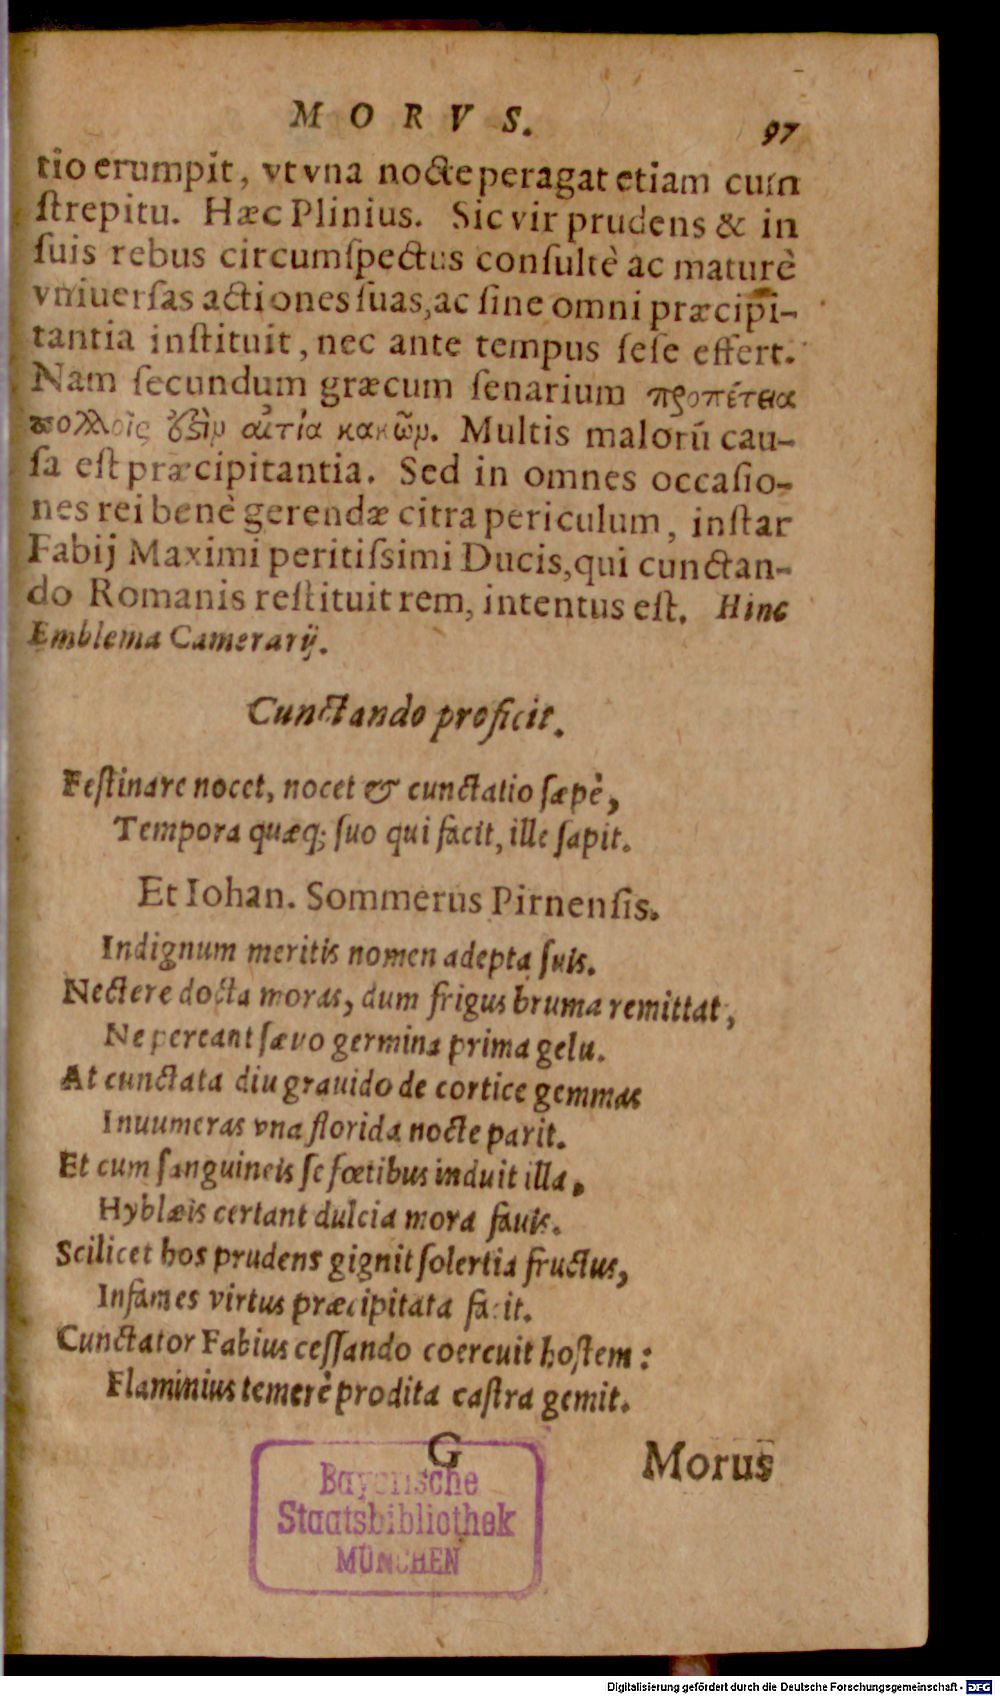 MORVS. 97
tio erumpit, vt vna nocte peragat etiam cum
ſtrepitu. Hæc Plinius. Sic vir prudens & in
ſuis rebus circumſpectus conſultè ac maturè
vniuerſas actiones ſuas, ac ſine omni præcipi-
tantia inſtituit, nec ante tempus ſeſe effert.
Nam ſecundum græcum ſenarium προπέτεια
πολλοῖς ἐξὶν αἰτία κακῶν. Multis malorū cau-
ſa eſt præcipitantia. Sed in omnes occaſio-
nes rei benè gerendæ citra periculum, inſtar
Fabij Maximi peritiſsimi Ducis, qui cunctan-
do Romanis reſtituit rem, intentus eſt. Hinc
Emblema Camerarij.
Cunctando proficit.
Feſtinare nocet, nocet & cunctatio ſæpè,
Tempora quæq; ſuo qui facit, ille ſapit.
Et Iohan. Sommerus Pirnenſis.
Indignum meritis nomen adepta ſuis.
Nectere docta moras, dum frigus bruma remittat,
Ne pereant ſævo germina prima gelu.
At cunctata diu grauido de cortice gemmas
Inuumeras vna florida nocte parit.
Et cum ſanguineis ſe fœtibus induit illa,
Hyblæis certant dulcia mora fauis.
Scilicet hos prudens gignit ſolertia fructus,
Infames virtus præcipitata facit.
Cunctator Fabius ceſſando coercuit hoſtem:
Flaminius temerè prodita caſtra gemit.
G Morus
Bayerische
Staatsbibliothek
MÜNCHEN
Digitalisierung gefördert durch die Deutsche Forschungsgemeinschaft - DFG